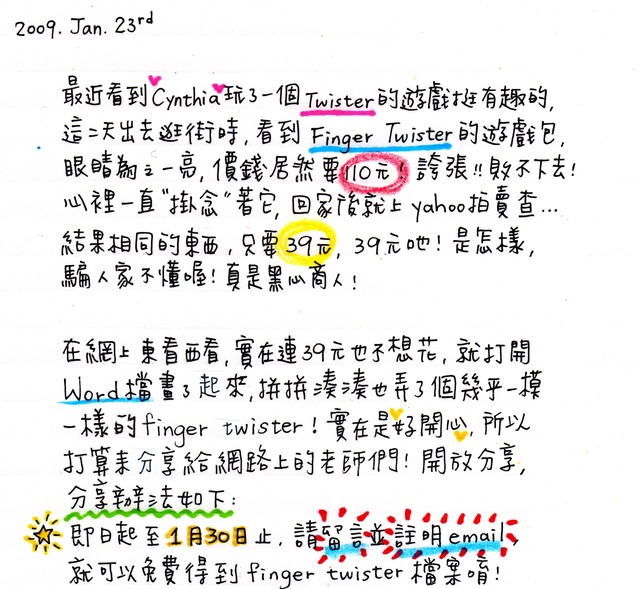 2009. Jan. 23rd
最近看到Cynthia玩了一個Twister的遊戲挺有趣的,
這二天出去逛街時,看到Finger Twister的遊戲包,
眼睛為之一亮,價錢居然要110元!誇張!!敗不下去!
心裡一直"掛念"著它,回家後就上yahoo拍賣查...
結果相同的東西,只要39元,39元吔!是怎樣,
騙人家不懂喔!真是黑心商人!
在網上東看西看,實在連39元也不想花,就打開
Word檔畫了起來,拼拼湊湊也弄了個幾乎一模
一樣的finger twister!實在是好開心,所以
打算來分享給網路上的老師們!開放分享,
分享辦法如下:
即日起至1月30日止,請留言並註明email,
就可以免費得到finger twister檔案唷!